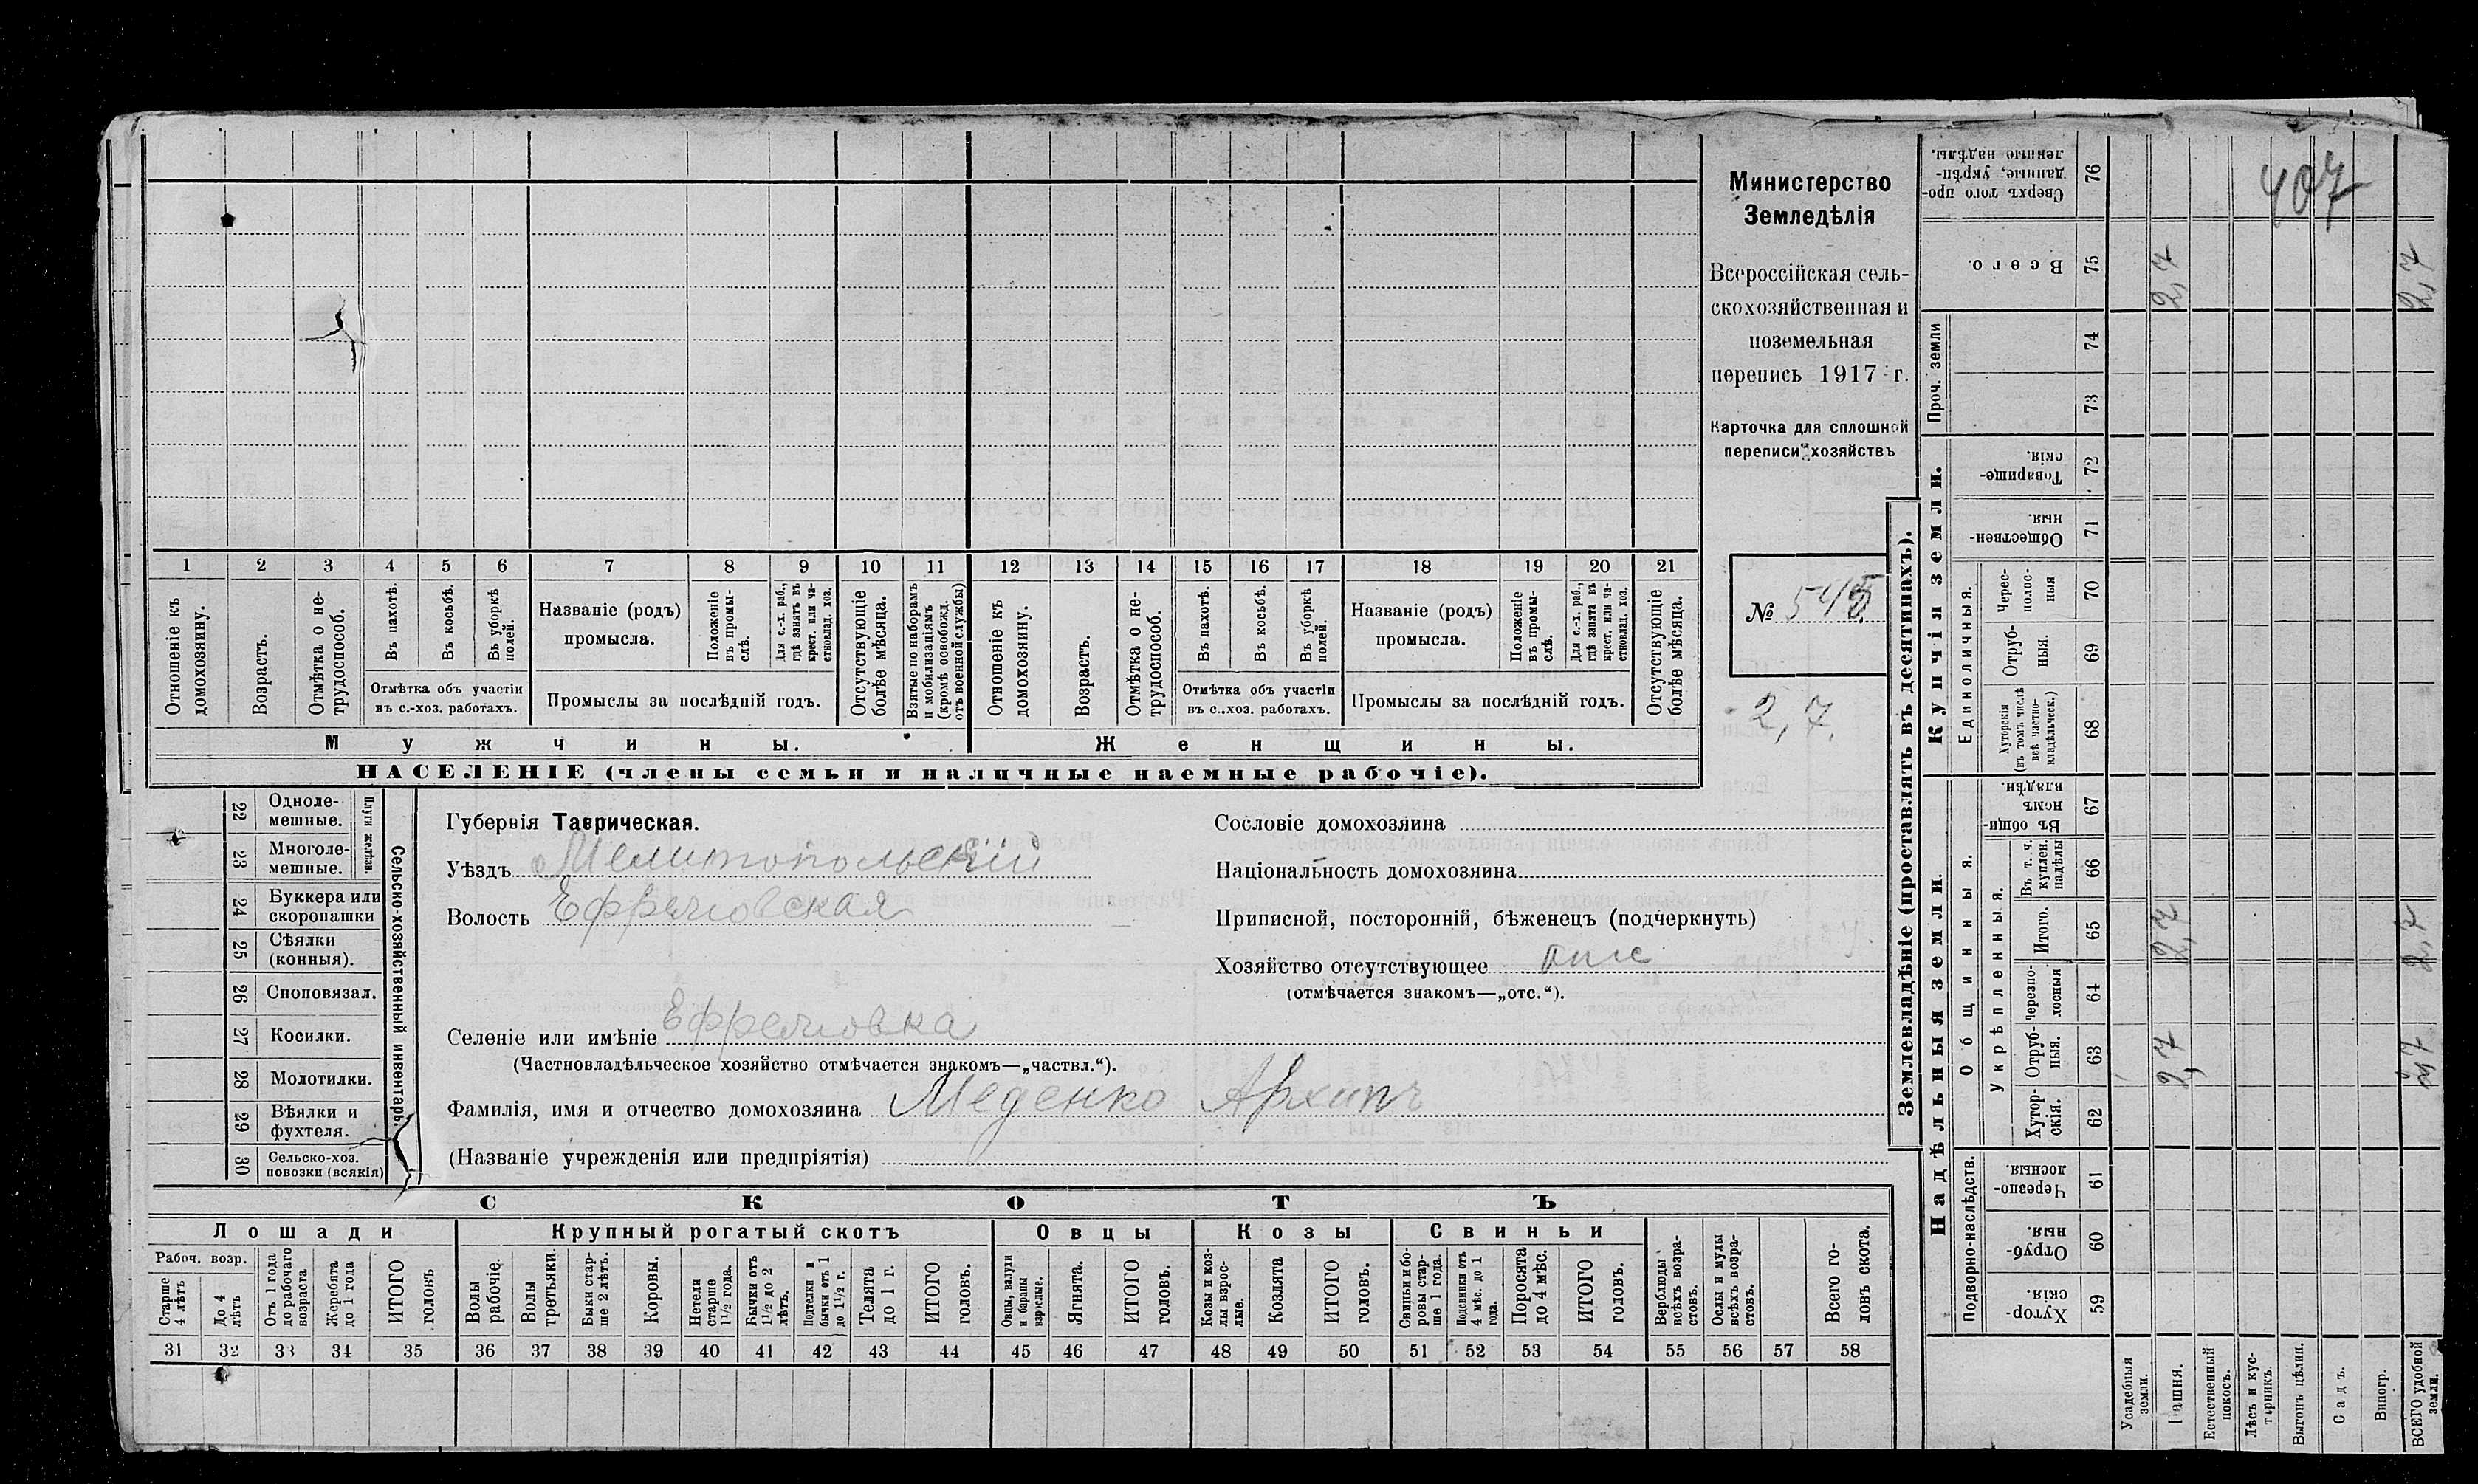 Министерство
Земледѣлія
Всероссійская сель-
скохозяйственная и
поземельная
перепись 1917 г.
Карточка для сплошной
переписи хозяйствъ
№ 545
2,7.
1 2 3 4 5 6 7 8 9 10 11 12 13 14 15 16 17 18 19 20 21
Отношеніе къ домохозяину.
Возрастъ.
Отмѣтка о не-трудоспособ.
Въ пахотѣ.
Въ косьбѣ.
Въ уборкѣ полей.
Отмѣтка объ участіи
въ с.-хоз. работахъ.
Названіе (родъ)
промысла.
Положеніе въ промы-слѣ.
Для с.-х. раб., гдѣ занятъ въ крест. или ча-стновлад. хоз.
Промыслы за послѣдній годъ.
Отсутствующіе болѣе мѣсяца.
Взятые по наборамъ и мобилизаціямъ (кромѣ освобожд. отъ военной службы)
Отношеніе къ домохозяину.
Возрастъ.
Отмѣтка о не-трудоспособ.
Въ пахотѣ.
Въ косьбѣ.
Въ уборкѣ полей.
Отмѣтка объ участіи
въ с.-хоз. работахъ.
Названіе (родъ)
промысла.
Положеніе въ промы-слѣ.
Для с.-х. раб., гдѣ занята въ крест. или ча-стновлад. хоз.
Промыслы за послѣдній годъ.
Отсутствующіе болѣе мѣсяца.
Мужчины. Женщины.
НАСЕЛЕНІЕ (члены семьи и наличные наемные рабочіе).
22 Одноле-мешные.
23 Многоле-мешные.
Плуги желѣзн.
24 Буккера или скоропашки
25 Сѣялки (конныя).
26 Сноповязал.
27 Косилки.
28 Молотилки.
29 Вѣялки и фухтеля.
30 Сельско-хоз. повозки (всякія)
Сельско-хозяйственный инвентарь.
Губернія Таврическая.
Уѣздъ Мелитопольскій
Волость Ефремовская
Сословіе домохозяина
Національность домохозяина
Приписной, посторонній, бѣженецъ (подчеркнуть)
Хозяйство отсутствующее отс
(отмѣчается знакомъ—„отс.“).
Селеніе или имѣніе Ефремовка
(Частновладѣльческое хозяйство отмѣчается знакомъ—„частвл.“).
Фамилія, имя и отчество домохозяина Меденко Архипъ
(Названіе учрежденія или предпріятія)
СКОТЪ
Лошади Крупный рогатый скотъ Овцы Козы Свиньи
Рабоч. возр.
Старше 4 лѣтъ
До 4 лѣтъ
Отъ 1 года до рабочаго возраста
Жеребята до 1 года
ИТОГО головъ
Волы рабочіе.
Волы третьяки.
Быки стар-ше 2 лѣтъ.
Коровы.
Нетели старше 1½ года.
Бычки отъ 1½ до 2 лѣтъ.
Подтелки и бычки отъ 1 до 1½ г.
Телята до 1 г.
ИТОГО головъ.
Овцы, валухи и бараны взрослые.
Ягнята.
ИТОГО головъ.
Козы и коз-лы взрос-лые.
Козлята
ИТОГО головъ.
Свиньи и бо-ровы стар-ше 1 года.
Подсвинки отъ 4 мѣс. до 1 года.
Поросята до 4 мѣс.
ИТОГО головъ.
Верблюды всѣхъ возра-стовъ.
Ослы и мулы всѣхъ возра-стовъ.
Всего го-ловъ скота.
31 32 33 34 35 36 37 38 39 40 41 42 43 44 45 46 47 48 49 50 51 52 53 54 55 56 57 58
Землевладѣніе (проставлять въ десятинахъ).
407
Сверхъ того про-данные, укрѣп-ленные надѣлы. 76
Всего. 75 2,7 2,7
Проч. земли 74
73
Купчія земли.
Товарище-скія. 72
Обществен-ныя. 71
Единоличныя.
Черес-полос-ныя 70
Отруб-ныя. 69
Хуторскія (въ томъ числѣ всѣ частно-владѣльческ.) 68
Надѣльныя земли.
Общинныя.
Въ общин-номъ владѣн. 67
Укрѣпленныя.
Въ т. ч. куплен. надѣлы 66
Итого. 65 2,7 2,7
Черезпо-лосныя 64
Отруб-ныя. 63 2,7 2,7
Хутор-скія. 62
Подворно-наслѣдств.
Черезпо-лосныя. 61
Отруб-ныя. 60
Хутор-скія. 59
Усадебныя земли.
Пашня.
Естественный покосъ.
Лѣсъ и кус-тарникъ.
Выгонъ цѣлин.
Садъ.
Виногр.
ВСЕГО удобной земли.